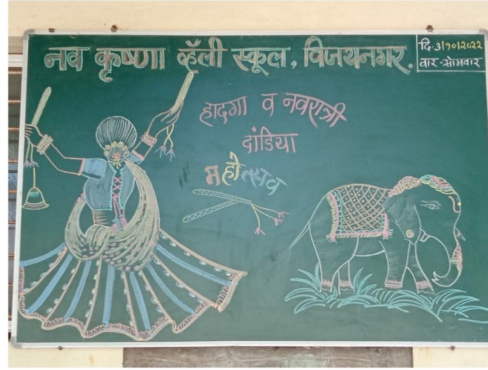 नव कृष्णा व्हॅली स्कूल, विजयनगर.
दि-3/१०/२०२२
वार-सोमवार
हादगा व नवरात्री
दांडिया
महोत्सव